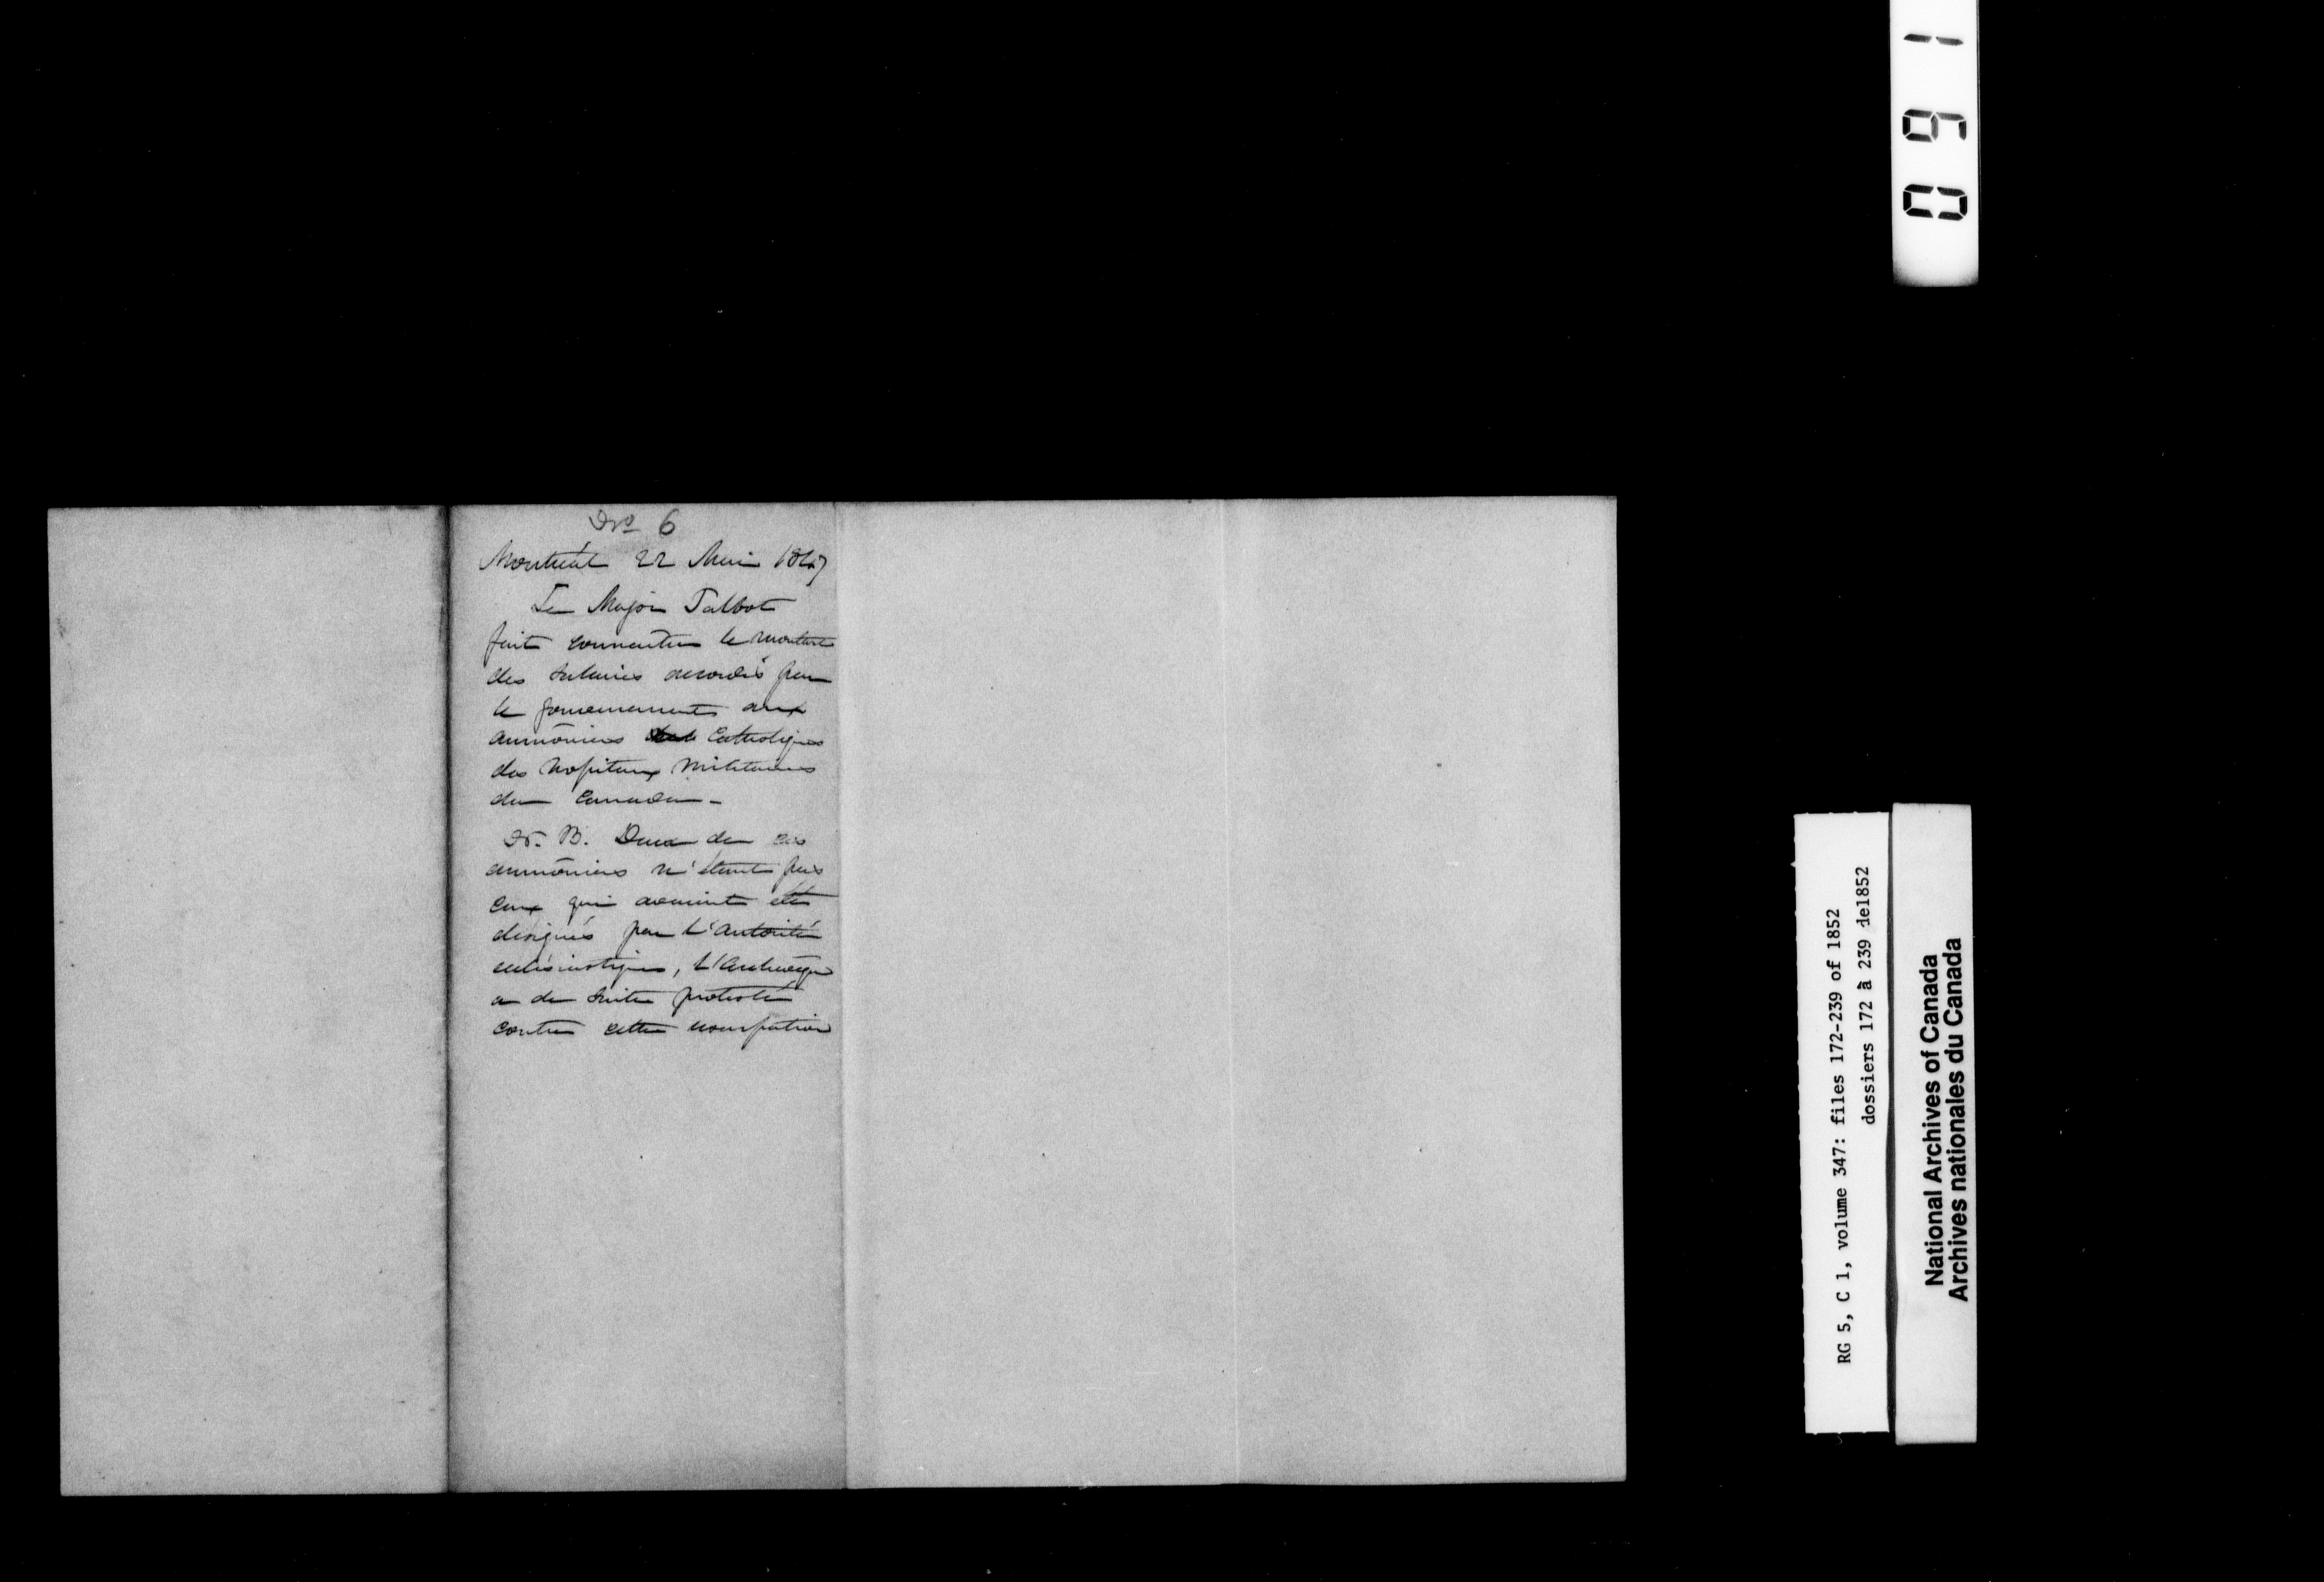 No 6
Montréal 22 Mai 1847
Le Major Talbot
fait connaitre le montant
des salaires accordés par
le gouvernement aux
aumôniers Catholiques
des hopitaux militaires
du Canada -
N. B. Deux de ces
aumôniers n'étant pas
ceux qui avaient été
désignés par l'autorité
ecclésiastique, l'Archevêque
a de suite protesté
contre cette usurpation
0 9 1
RG 5, C 1, volume 347: files 172-239 of 1852
dossiers 172 à 239 de1852
National Archives of Canada
Archives nationales du Canada